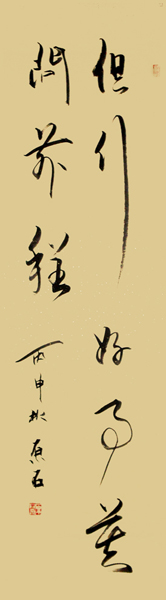 但行好事莫
问前程
丙申秋原石